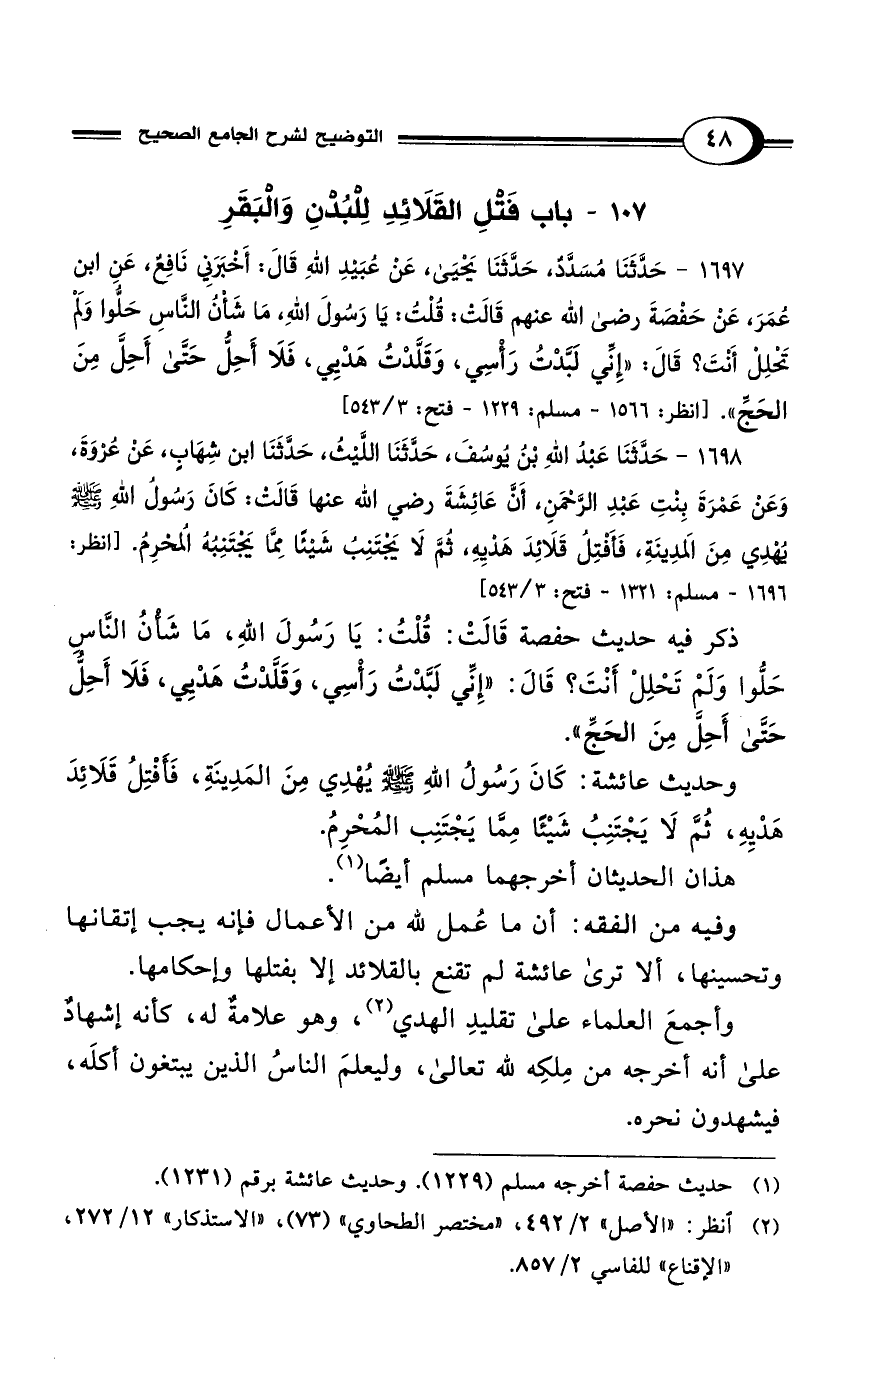 ٤٨
التوضيح لشرح الجامع الصحيح
١٠٧ - باب فَتْلِ القَلَائِدِ لِلْبُدْنِ وَالْبَقَرِ
١٦٩٧ - حَدَّثَنَا مُسَدَّدٌ، حَدَّثَنَا يَحْيَىٰ، عَنْ عُبَيْدِ اللهِ قَالَ: أَخْبَرَنِي نَافِعٌ، عَنِ ابن
عُمَرَ، عَنْ حَفْصَةَ رضىٰ الله عنهم قَالَتْ: قُلْتُ: يَا رَسُولَ اللهِ، مَا شَأْنُ النَّاسِ حَلُّوا وَلَمْ
تَحْلِلْ أَنْتَ؟ قَالَ: «إِنِّي لَبَّدْتُ رَأْسِي، وَقَلَّدْتُ هَدْيِي، فَلَا أَحِلُّ حَتَّىٰ أَحِلَّ مِنَ
الحَجِّ». [انظر: ١٥٦٦ - مسلم: ١٢٢٩ - فتح: ٥٤٣/٣]
١٦٩٨ - حَدَّثَنَا عَبْدُ اللهِ بْنُ يُوسُفَ، حَدَّثَنَا اللَّيْثُ، حَدَّثَنَا ابن شِهَابٍ، عَنْ عُرْوَةَ،
وَعَنْ عَمْرَةَ بِنْتِ عَبْدِ الرَّحْمَنِ، أَنَّ عَائِشَةَ رضي الله عنها قَالَتْ: كَانَ رَسُولُ اللهِ ﷺ
يُهْدِي مِنَ المَدِينَةِ، فَأَفْتِلُ قَلَائِدَ هَدْيِهِ، ثُمَّ لَا يَجْتَنِبُ شَيْئًا مِمَّا يَجْتَنِبُهُ المُحْرِمُ. [انظر:
١٦٩٦ - مسلم: ١٣٢١ - فتح: ٥٤٣/٣]
ذكر فيه حديث حفصة قَالَتْ: قُلْتُ: يَا رَسُولَ اللهِ، مَا شَأْنُ النَّاسِ
حَلُّوا وَلَمْ تَحْلِلْ أَنْتَ؟ قَالَ: «إِنِّي لَبَّدْتُ رَأْسِي، وَقَلَّدْتُ هَدْيِي، فَلَا أَحِلُّ
حَتَّىٰ أَحِلَّ مِنَ الحَجِّ».
وحديث عائشة: كَانَ رَسُولُ اللهِ ﷺ يُهْدِي مِنَ المَدِينَةِ، فَأَفْتِلُ قَلَائِدَ
هَدْيِهِ، ثُمَّ لَا يَجْتَنِبُ شَيْئًا مِمَّا يَجْتَنِب المُحْرِمُ.
هذان الحديثان أخرجهما مسلم أيضًا(١).
وفيه من الفقه: أن ما عُمل لله من الأعمال فإنه يجب إتقانها
وتحسينها، ألا ترىٰ عائشة لم تقنع بالقلائد إلا بفتلها وإحكامها.
وأجمعَ العلماء علىٰ تقليدِ الهدي(٢)، وهو علامةٌ له، كأنه إشهادٌ
علىٰ أنه أخرجه من مِلكِه لله تعالىٰ، وليعلمَ الناسُ الذين يبتغون أكلَه،
فيشهدون نحره.
(١) حديث حفصة أخرجه مسلم (١٢٢٩). وحديث عائشة برقم (١٢٣١).
(٢) ٱنظر: «الأصل» ٤٩٢/٢، «مختصر الطحاوي» (٧٣)، «الاستذكار» ٢٧٢/١٢،
«الإقناع» للفاسي ٨٥٧/٢.